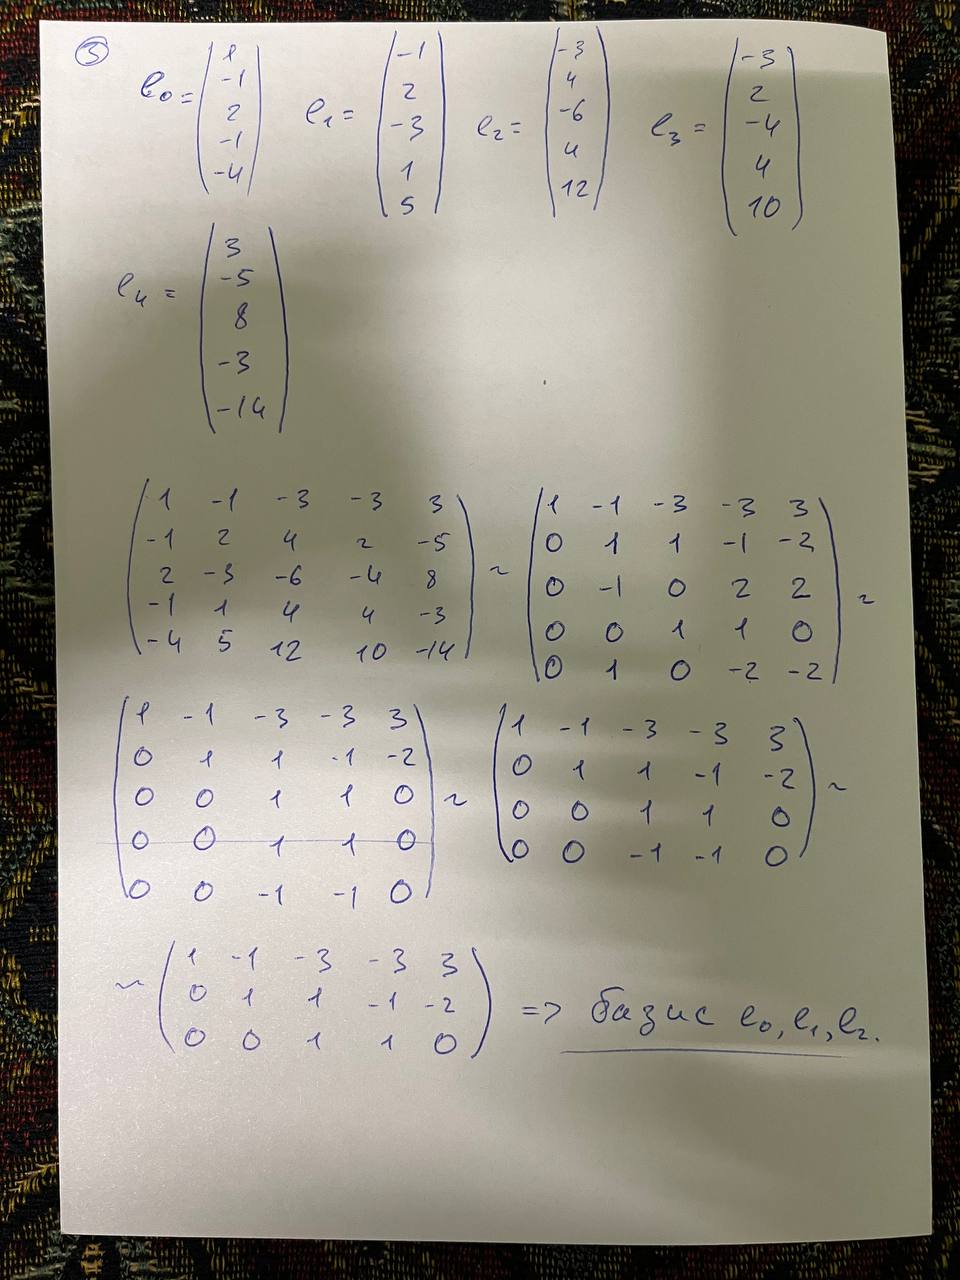 ③
e₀ = (1 -1 2 -1 -4) e₁ = (-1 2 -3 1 5) e₂ = (-3 4 -6 4 12) e₃ = (-3 2 -4 4 10)
e₄ = (3 -5 8 -3 -14)
1 -1 -3 -3 3
-1 2 4 2 -5
2 -3 -6 -4 8
-1 1 4 4 -3
-4 5 12 10 -14
~
1 -1 -3 -3 3
0 1 1 -1 -2
0 -1 0 2 2
0 0 1 1 0
0 1 0 -2 -2
~
1 -1 -3 -3 3
0 1 1 -1 -2
0 0 1 1 0
0 0 1 1 0
0 0 -1 -1 0
~
1 -1 -3 -3 3
0 1 1 -1 -2
0 0 1 1 0
0 0 -1 -1 0
~
~
1 -1 -3 -3 3
0 1 1 -1 -2
0 0 1 1 0
=> базис e₀, e₁, e₂.